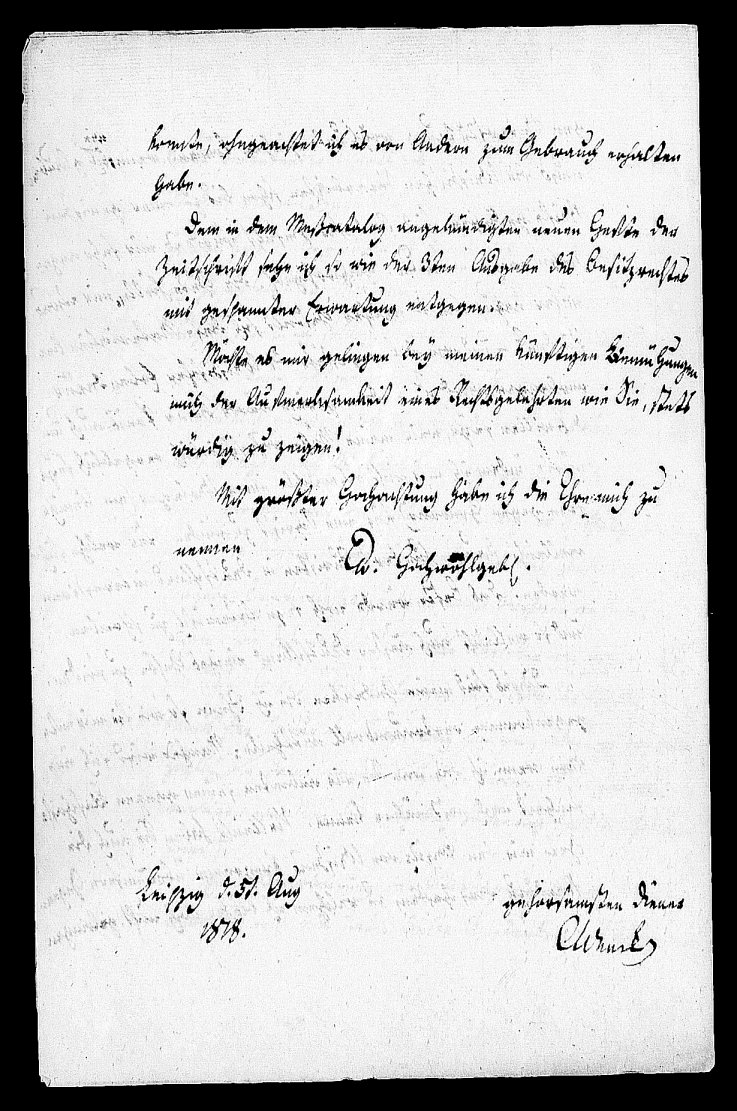 konnte, ohngeachtet ich es von Andern zum Gebrauch erhalten
habe.
Dem in dem Meßcatalog angekündigten neuen Hefte der
Zeitschrift sehe ich so wie der 3ten Ausgabe des Besitzrechtes
mit gespannter Erwartung entgegen.
Möchte es mir gelingen bey meinen künftigen Bemühungen
mich der Aufmerksamkeit eines Rechtsgelehrten wie Sie, stets
würdig zu zeigen!
Mit größter Hochachtung habe ich die Ehre mich zu
nennen
Ew. Hochwohlgeb.
Leipzig d. 5t. Aug
1818.
gehorsamsten Diener
CWenck